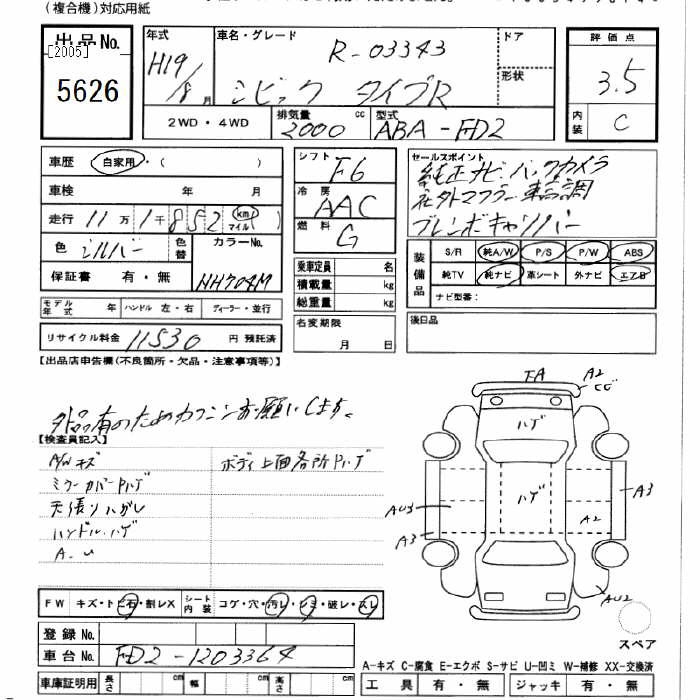 (複合機)対応用紙
出品No.
[2005]
5626
年式 H19/8月
車名・グレード R-03343
シビック タイプR
ドア
形状
評価点
3.5
内装 C
2WD・4WD
排気量 2000 cc
型式 ABA-FD2
車歴 自家用・( )
車検 年 月
走行 11万1千852 km マイル ( )
色 シルバー 色替 カラーNo. NH704M
保証書 有・無
シフト F6
冷房 AAC
燃料 G
セールスポイント
純正ナビ バックカメラ
社外マフラー 車高調
ブレンボキャリパー
装備品 S/R 純A/W P/S P/W ABS
純TV 純ナビ 革シート 外ナビ エアB
ナビ型番:
乗車定員 名
積載量 kg
総重量 kg
モデル年式 年 ハンドル 左・右 ディーラー・並行
名変期限
月 日
後日品
リサイクル料金 11530 円 預託済
【出品店申告欄(不良箇所・欠品・注意事項等)】
外品有のためカクニンお願いします。
【検査員記入】
A/Wキズ
ボディ上面各所Pハゲ
ミラーカバーPハゲ
天張りハガレ
ハンドルハゲ
A-U
FA
A2
ハゲ
ハゲ
A3
A3
A2
AU2
FW キズ・トビ石・割レX
シート内装 コゲ・穴・汚レ・シミ・破レ・スレ
登録No.
車台No. FD2-1203364
車庫証明用 長さ cm 幅 cm 高さ cm
スペア
A-キズ C-腐食 E-エクボ S-サビ U-凹ミ W-補修 XX-交換済
工具 有・無 ジャッキ 有・無